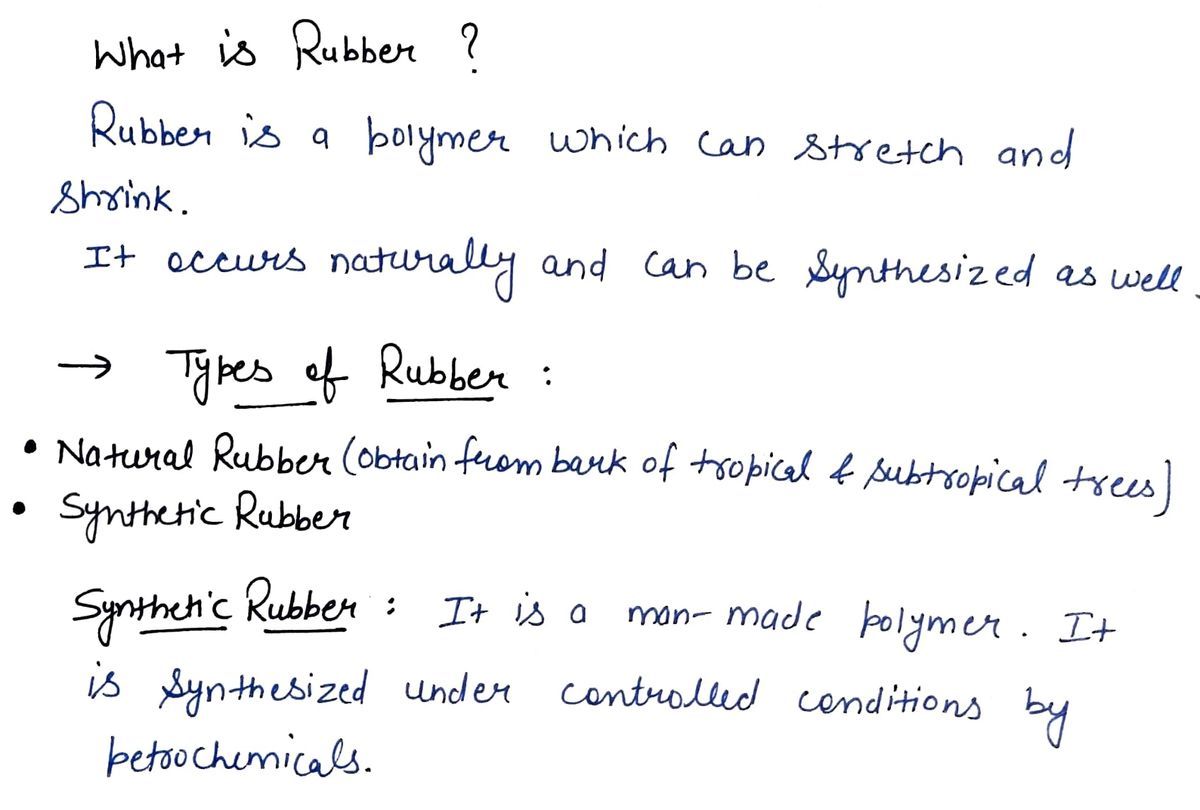 What is Rubber ?
Rubber is a polymer which can stretch and
shrink.
It occurs naturally and can be synthesized as well.
→ Types of Rubber :
• Natural Rubber (obtain from bark of tropical & subtropical trees)
• Synthetic Rubber
Synthetic Rubber : It is a man-made polymer. It
is synthesized under controlled conditions by
petrochemicals.